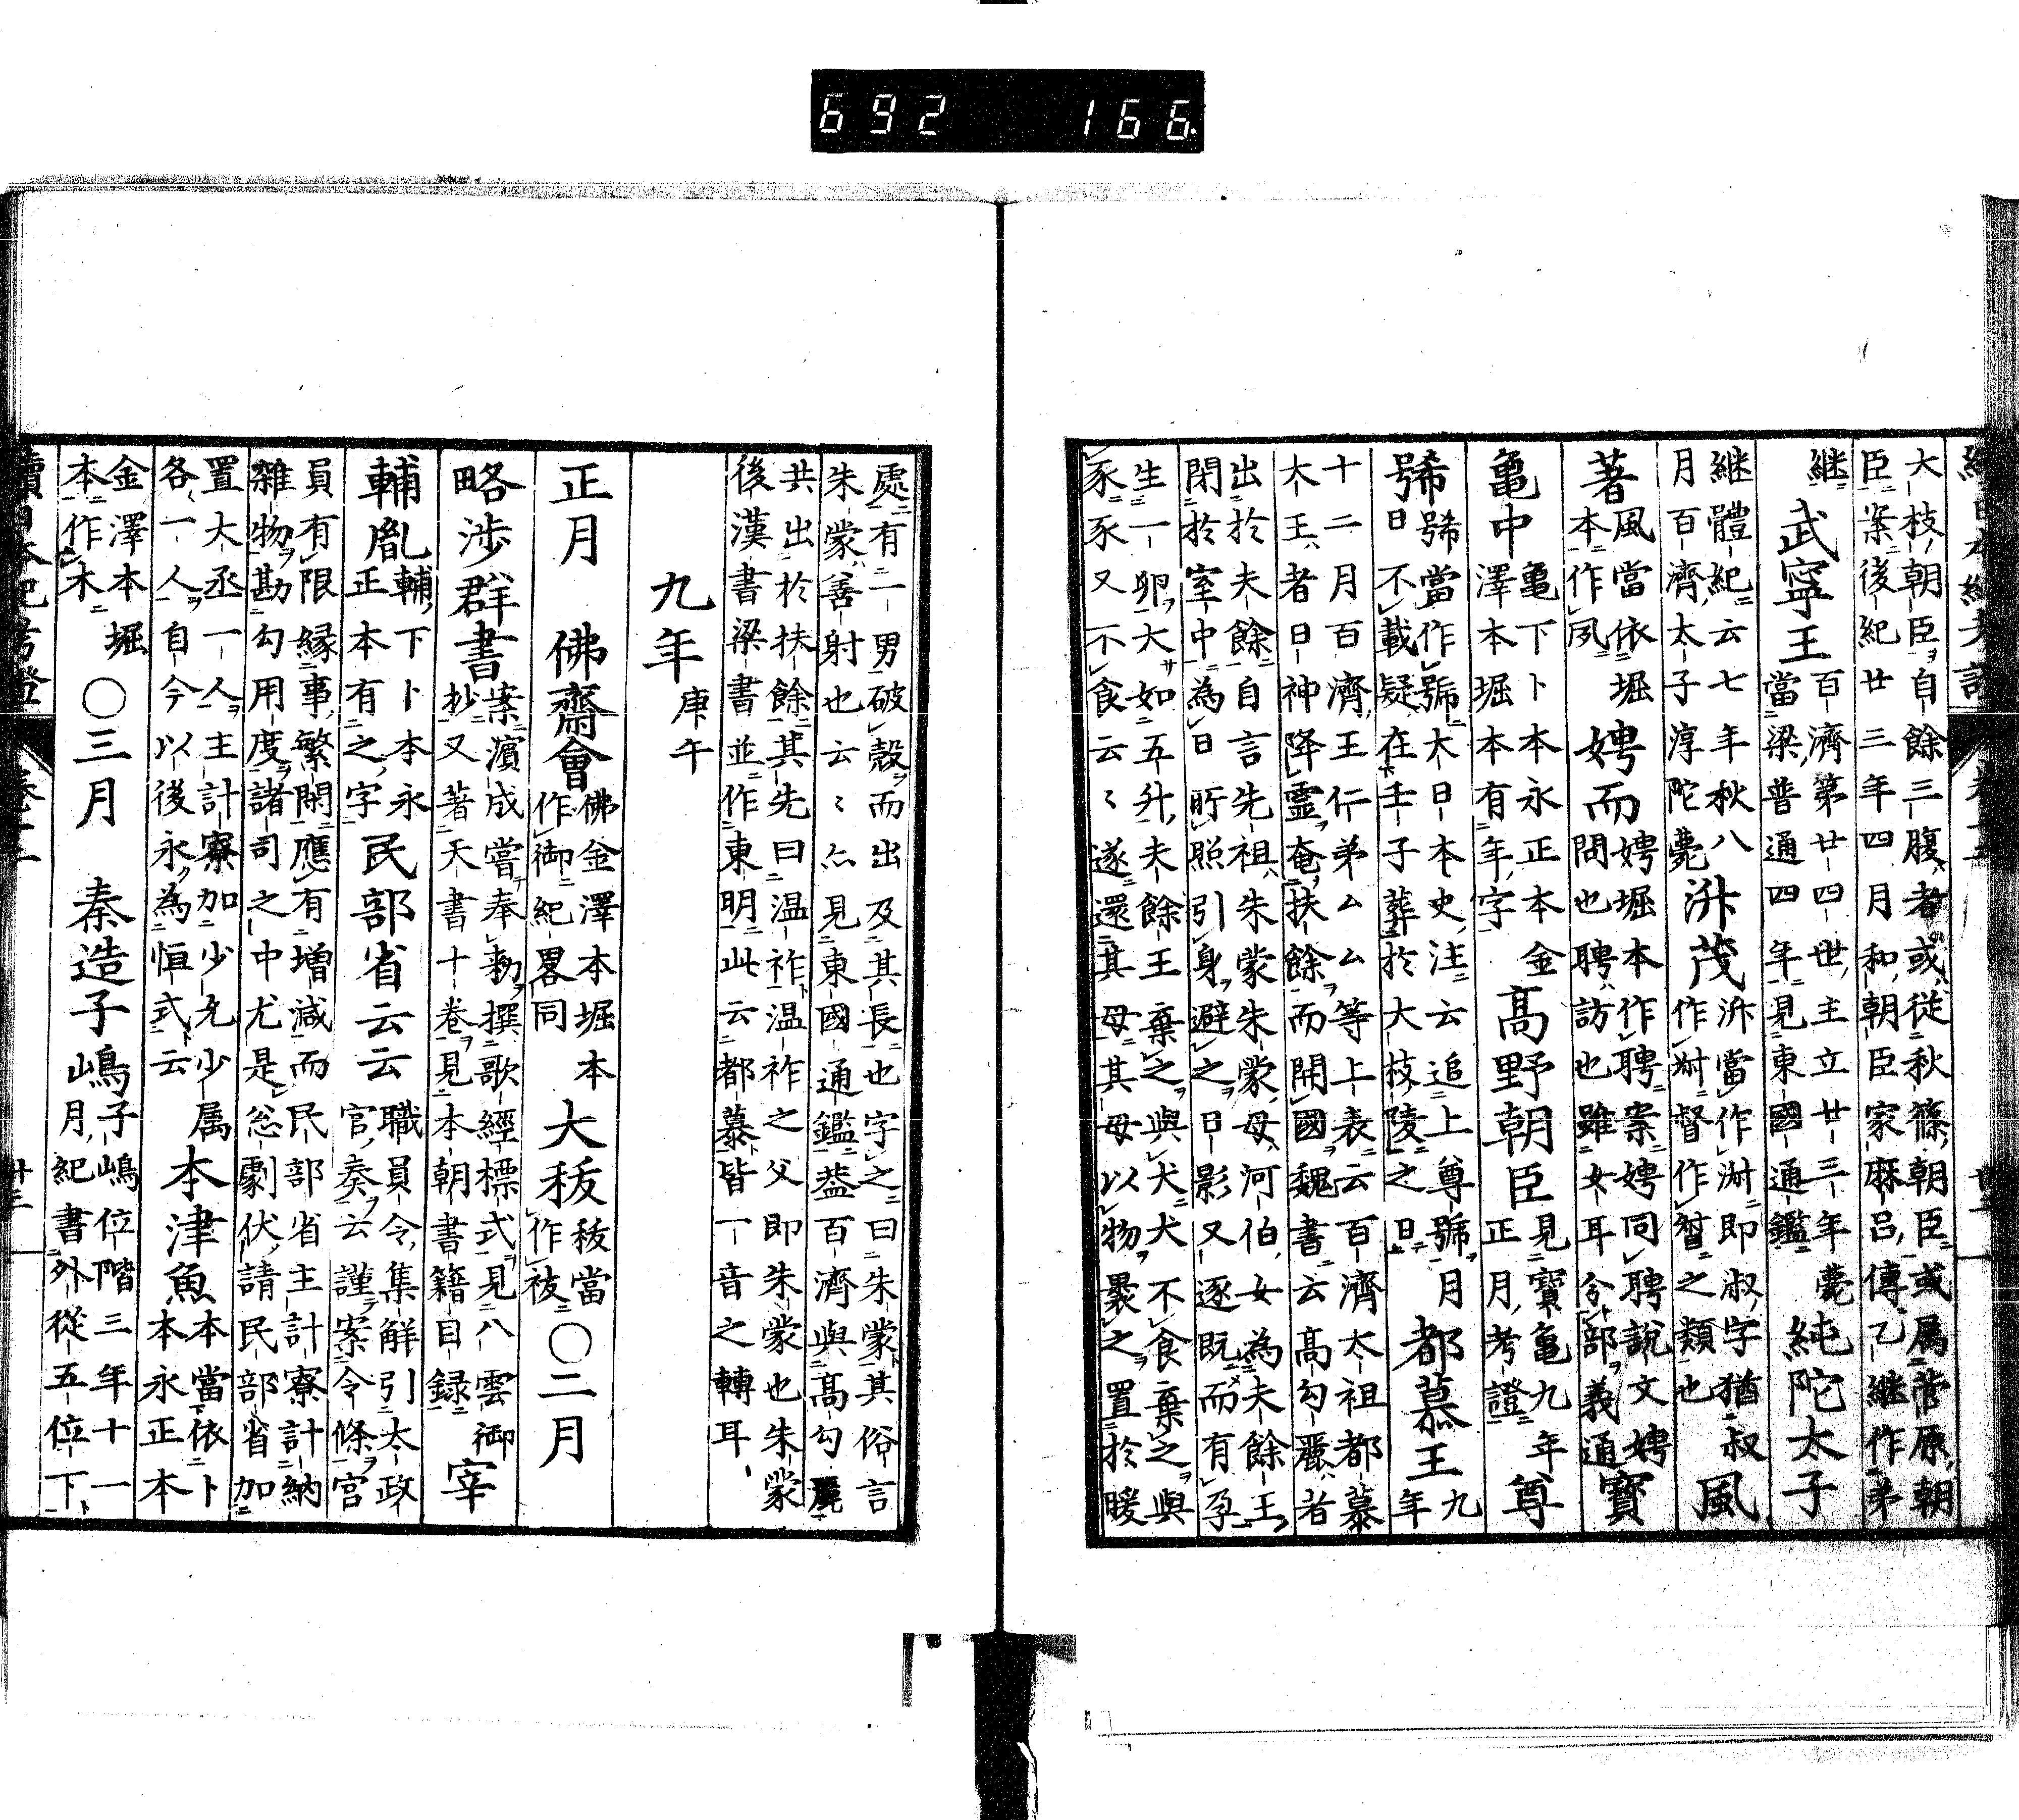 692 166
大枝朝臣自餘三腹者或從秋篠朝臣或属菅原朝
臣案後紀廿三年四月和朝臣家麻呂傳乙継作弟
継 武寧王 百濟第廿四世主立廿三年薨
當梁普通四年見東國通鑑 純陀太子
継體紀云七年秋八
月百濟太子淳陀薨 泭茂 泭當作泭即淑字猶叔
作尗督作督之類也 風
著 風當依堀
本作夙 娉而 娉堀本作聘案娉同聘說文娉
問也聘訪也雖女耳令部義通 寳
亀中 亀下卜本永正本金
澤本堀本有年字 高野朝臣 見寳亀九年
正月考證 尊
號 號當作號大日本史注云追上尊號月
日不載疑在壬子葬於大枝陵之日 都慕王 九
年
十二月百濟王仁弟ムム等上表云百濟太祖都慕
大王者日神降靈奄扶餘而開國魏書云高勾麗者
出於夫餘自言先祖朱蒙朱蒙母河伯女為夫餘王
閉於室中為日所照引身避之日影又逐既而有孕
生一卵大如五升夫餘王棄之與犬犬不食棄之與
豕豕又不食云々遂還其母其母以物褁之置於暖
處有一男破殻而出及其長也字之曰朱蒙其俗言
朱蒙善射也云々亦見東國通鑑葢百濟與高勾麗
共出於扶餘其先曰温祚温祚之父即朱蒙也朱蒙
後漢書梁書並作東明此云都慕皆一音之轉耳
九年 庚午
正月 佛齋會 佛金澤本堀本
作御紀畧同 大秡 秡當
作祓 〇二月
略涉群書 案濱成嘗奉勅撰歌經標式見八雲御
抄又著天書十卷見本朝書籍目録 宰
輔胤 輔下卜本永
正本有之字 民部省云云 職員令集解引太政
官奏云謹案令條官
員有限縁事繁閑應有增減而民部省主計寮計納
雜物勘勾用度諸司之中尤是忩劇伏請民部省加
置大丞一人主計寮加少允少属
各一人自今以後永為恒式云 本津魚 本當依卜
本永正本
金澤本堀
本作木 〇三月 秦造子嶋 子嶋位階三年十一
月紀書外從五位下